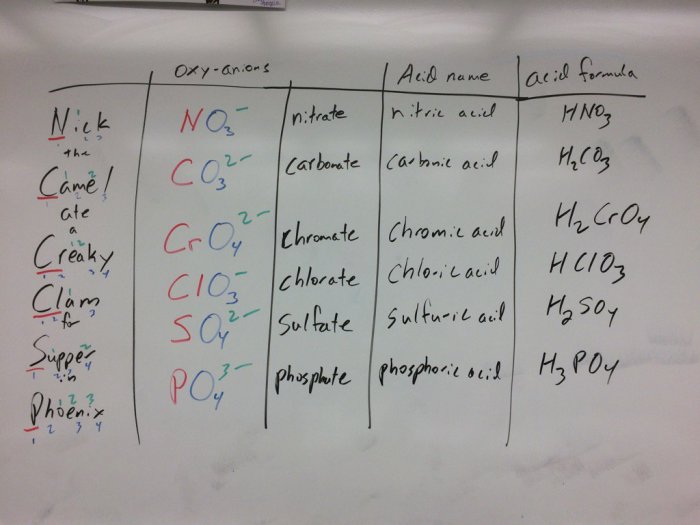 Oxy-anions Acid name acid formula
Nick NO₃⁻ nitrate nitric acid HNO₃
1 2 3
the
Camel CO₃²⁻ carbonate carbonic acid H₂CO₃
ate
a
Creaky CrO₄²⁻ chromate Chromic acid H₂CrO₄
Clam ClO₃⁻ chlorate Chloric acid HClO₃
for
Supper SO₄²⁻ sulfate sulfuric acid H₂SO₄
in
Phoenix PO₄³⁻ phosphate phosphoric acid H₃PO₄
1 2 3
1 2 3 4